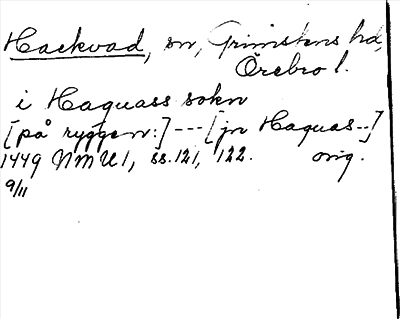 Hackvad, sn, Grimstens hd,
Örebro l.
i Haquass sokn
[på ryggen:] --- [jn Haquas..]
1449 NMU 1, ss. 121, 122. orig.
9/11